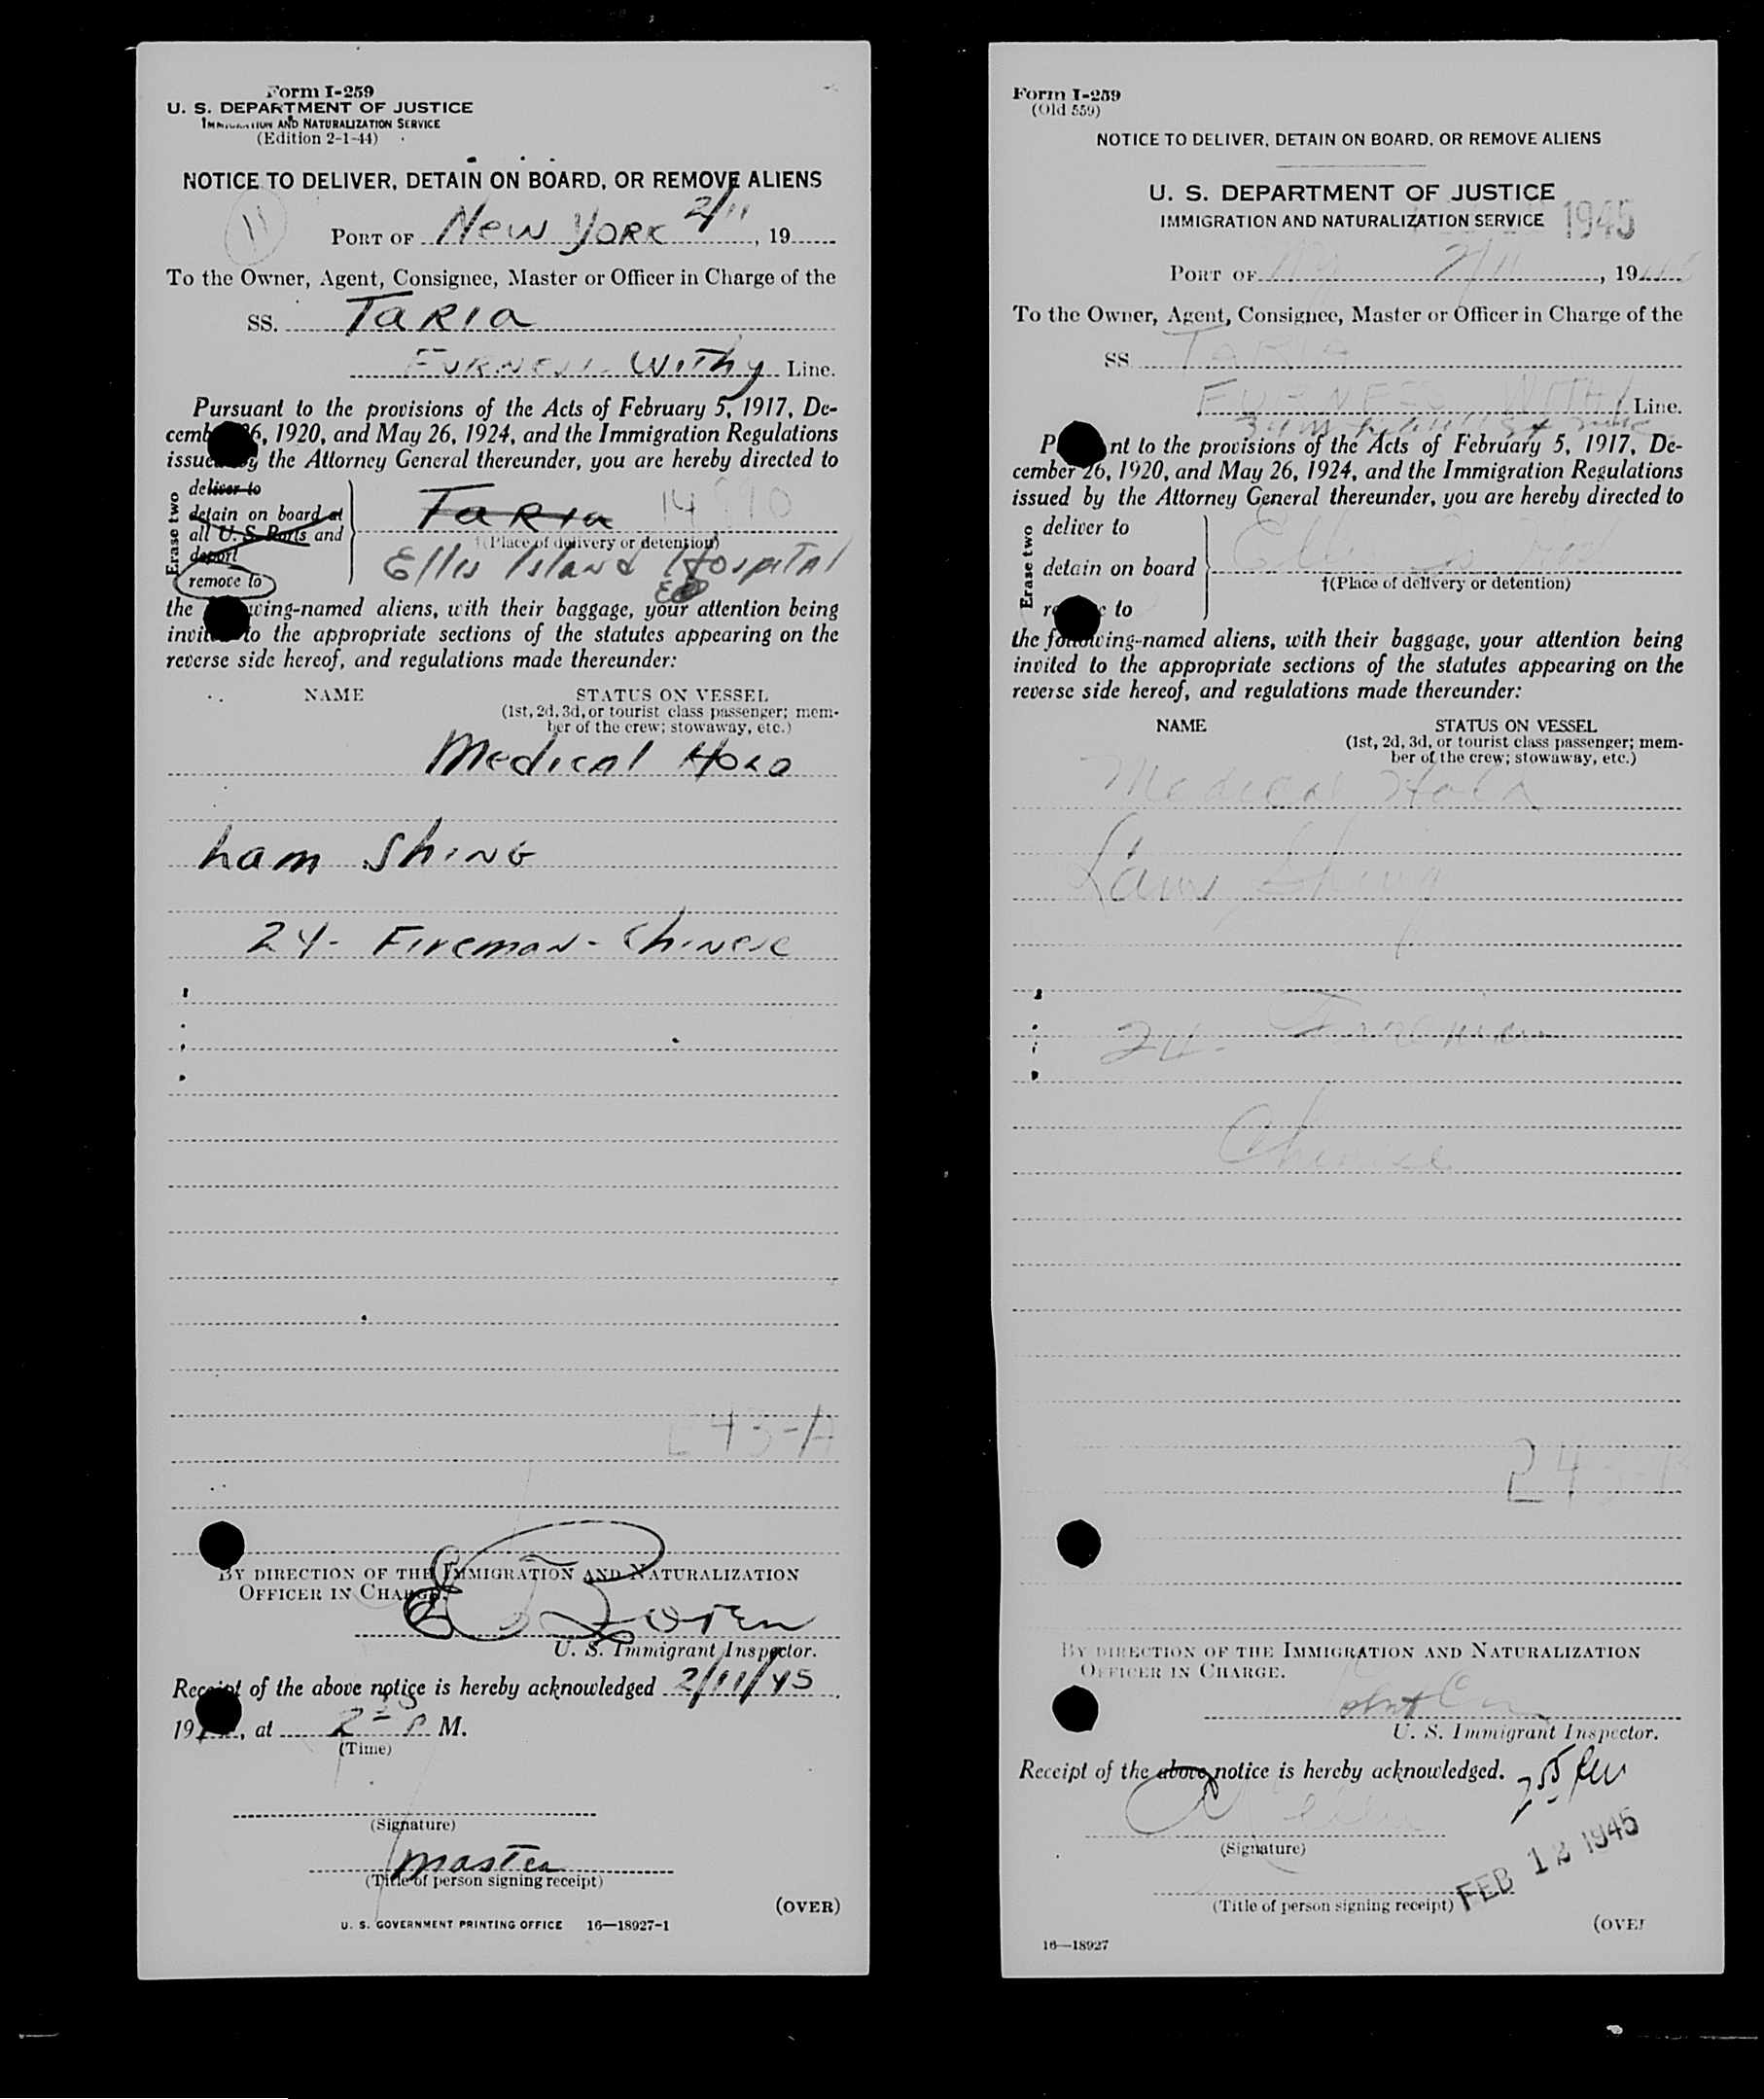 Form I-259
U. S. DEPARTMENT OF JUSTICE
IMMIGRATION AND NATURALIZATION SERVICE
(Edition 2-1-44)
NOTICE TO DELIVER, DETAIN ON BOARD, OR REMOVE ALIENS
11
PORT OF New York 2/11, 19
To the Owner, Agent, Consignee, Master or Officer in Charge of the
SS. Taria
Furness-Withy Line.
Pursuant to the provisions of the Acts of February 5, 1917, De-
cember 26, 1920, and May 26, 1924, and the Immigration Regulations
issued by the Attorney General thereunder, you are hereby directed to
Erase two
deliver to
detain on board at
all U. S. Ports and
deport
remove to
Taria
†(Place of delivery or detention)
Ellis Island Hospital
the following-named aliens, with their baggage, your attention being
invited to the appropriate sections of the statutes appearing on the
reverse side hereof, and regulations made thereunder:
NAME STATUS ON VESSEL
(1st, 2d, 3d, or tourist class passenger; mem-
ber of the crew; stowaway, etc.)
Medical Hold
Lam Shing
24- Fireman- Chinese
BY DIRECTION OF THE IMMIGRATION AND NATURALIZATION
OFFICER IN CHARGE.
U. S. Immigrant Inspector.
Receipt of the above notice is hereby acknowledged 2/11/45,
19, at P M.
(Time)
(Signature)
Master
(Title of person signing receipt)
(OVER)
U. S. GOVERNMENT PRINTING OFFICE 16—18927-1
Form I-259
(Old 559)
NOTICE TO DELIVER, DETAIN ON BOARD, OR REMOVE ALIENS
U. S. DEPARTMENT OF JUSTICE
IMMIGRATION AND NATURALIZATION SERVICE 1945
PORT OF NY 2/11, 19
To the Owner, Agent, Consignee, Master or Officer in Charge of the
SS. TARIA
FURNESS WITHY Line.
Pursuant to the provisions of the Acts of February 5, 1917, De-
cember 26, 1920, and May 26, 1924, and the Immigration Regulations
issued by the Attorney General thereunder, you are hereby directed to
Erase two
deliver to
detain on board
remove to
Ellis Is
†(Place of delivery or detention)
the following-named aliens, with their baggage, your attention being
invited to the appropriate sections of the statutes appearing on the
reverse side hereof, and regulations made thereunder:
NAME STATUS ON VESSEL
(1st, 2d, 3d, or tourist class passenger; mem-
ber of the crew; stowaway, etc.)
Medical Hold
Lam Shing
24- Fireman
Chinese
BY DIRECTION OF THE IMMIGRATION AND NATURALIZATION
OFFICER IN CHARGE.
U. S. Immigrant Inspector.
Receipt of the above notice is hereby acknowledged.
(Signature)
FEB 12 1945
(Title of person signing receipt)
(OVER
16—18927